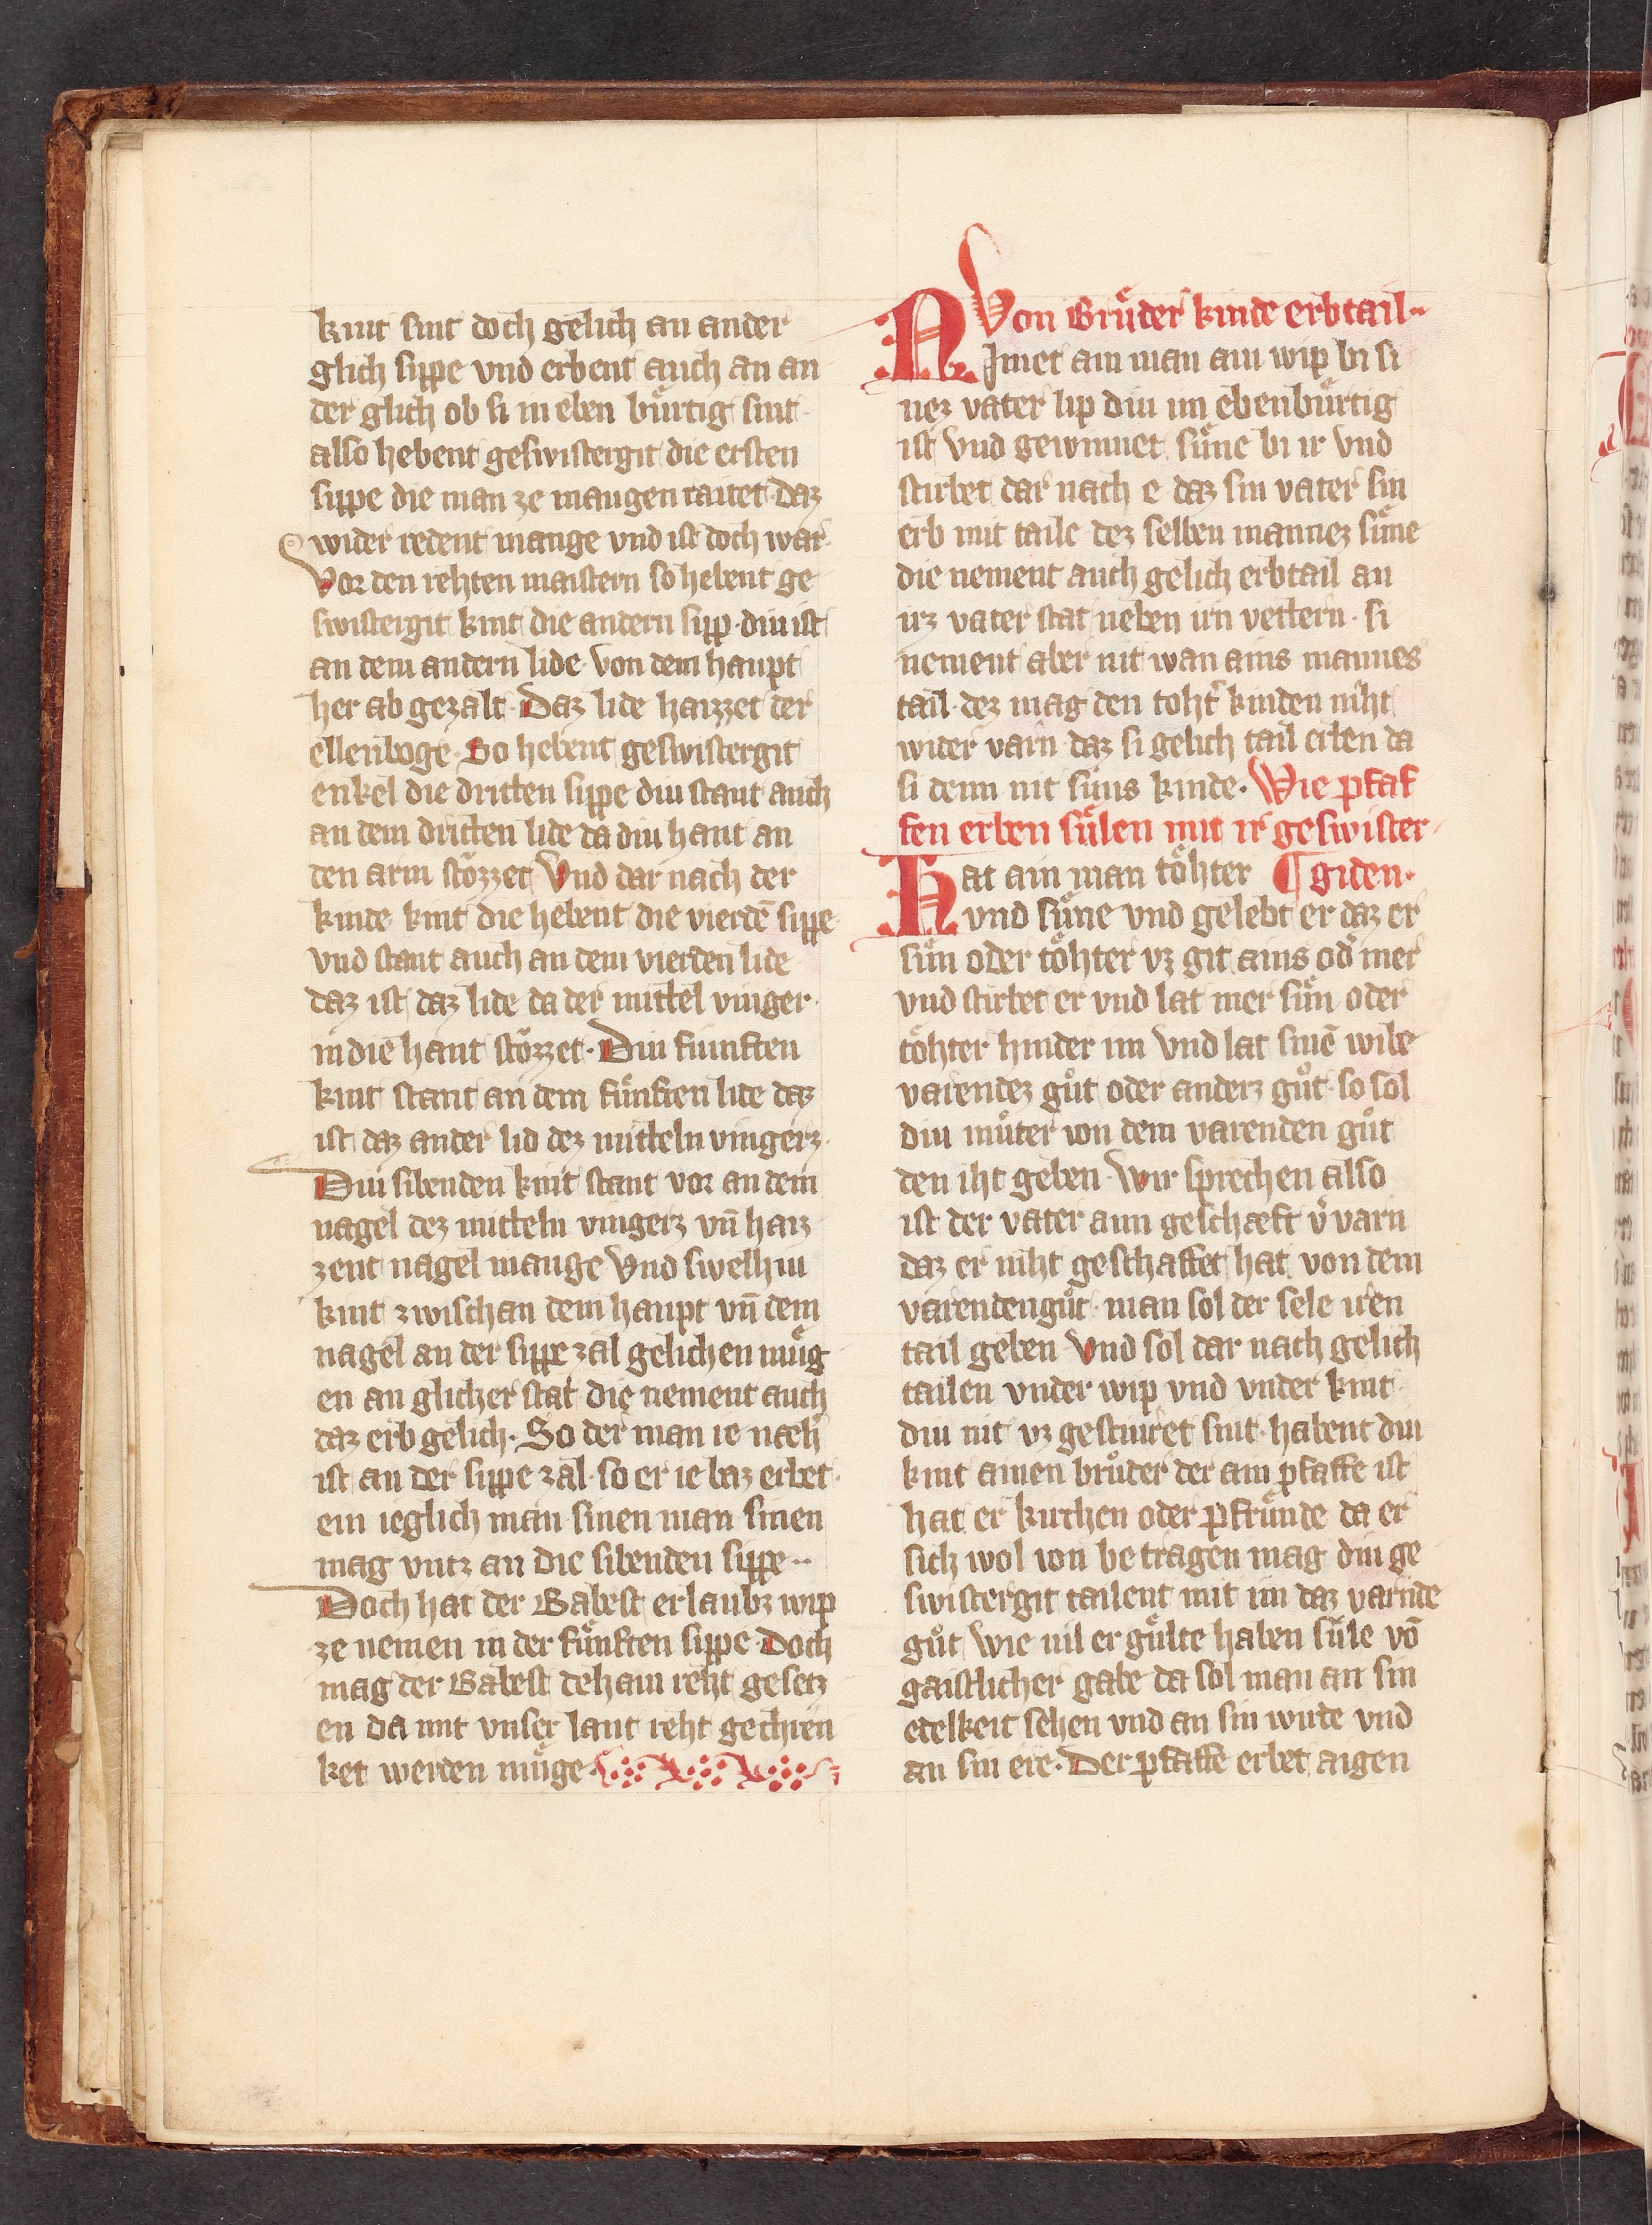 kint sint doch gelich an ander
glich sippe vnd erbent auch an an
der glich ob si in eben bu̍rtig sint
also hebent geswistergit die ersten
sippe die man ze maugen raitet · Daz
wider redent mange vnd ist doch war·
Vor den rehten maistern so hebent ge
swistergit kint die andern sipp · diu ist
an dem andern lide · von dem haupt
her ab gezalt · Daz lide haizzet der
ellenboge · So hebent geswistergit
enkel die dritten sippe diu stant auch
an dem dritten lide da diu hant an
den arm sto̍zzet Vnd dar nach der
kinde kint die hebent die vierdē sippe
vnd stant auch an dem vierden lide
daz ist daz lide da der mittel vinger·
in die hant sto̍zzet · Diu fuinften
kint stant an dem fu̍nften lide daz
ist daz ander lid dez mitteln vingerz·
Diu sibenden kint stant vor an dem
nagel dez mitteln vingerz vn̄ haiz
zent nagel mauge Vnd swelhiu
kint zwischan dem haupt vn̄ dem
nagel an der sippe zal gelichen mu̍g
en an glicher stat die nement auch
daz erb gelich · So der man ie næh̍
ist an der sippe zal · so er ie baz erbet·
ein ieglich man sinen man sinen
mag vntz an die sibenden sippe··
Doch hat der Babest erlaubz wip
ze nemen in der fu̍nften sippe · Doch
mag der Babest dehain reht gesetz
en da mit vnser lant reht gechren
ket werden mu̍ge ·
Von Bru̍der kinde erbtail··
Nimet ain man ain wip bi si
nez vater lip diu im ebenbu̍rtig
ist Vnd gewinnet su̍ne bi ir Vnd
stirbet dar nach e daz sin vater sin
erb mit taile dez selben mannez su̍ne
die nement auch gelich erbtail an
irz vater stat neben irn vettern · si
nement aber nit wan ains mannes
tail · dez mag den toht̍ kinden niht
wider varn daz si gelich tail erben da
si denn nit su̍ns kinde · Wie pfaf
fen erben su̍len mit ir geswister
Hat ain man to̍hter ¶ giden·
vnd su̍ne vnd gelebt er daz er
su̍n oder to̍hter vz git ains od̍ mer
vnd stirbet er vnd lat mer su̍n oder
to̍hter hinder im Vnd lat sinē wibe
varendez guͦt oder anderz guͦt · so sol
diu muͦter von dem varenden guͦt
den iht geben · Wir sprechen also
ist der vater ann geschæft v̍varn
daz er niht geschaffet hat von dem
varendenguͦt · man sol der sele iren
tail geben Vnd sol dar nach gelich
tailen vnder wip vnd vnder kint·
diu nit vz gestiuret sint · habent diu
kint ainen bruͦder der ain pfaffe ist
hat er kirchen oder pfru̍nde da er
sich wol von betragen mag diu ge
swistergit tailent mit im daz varnde
guͦt Wie uil er gu̍lte haben su̍le vō
gaistlicher gabe da sol man an sin
edelkeit sehen vnd an sin wirde vnd
an sin ere · Der pfaffe erbet aigen